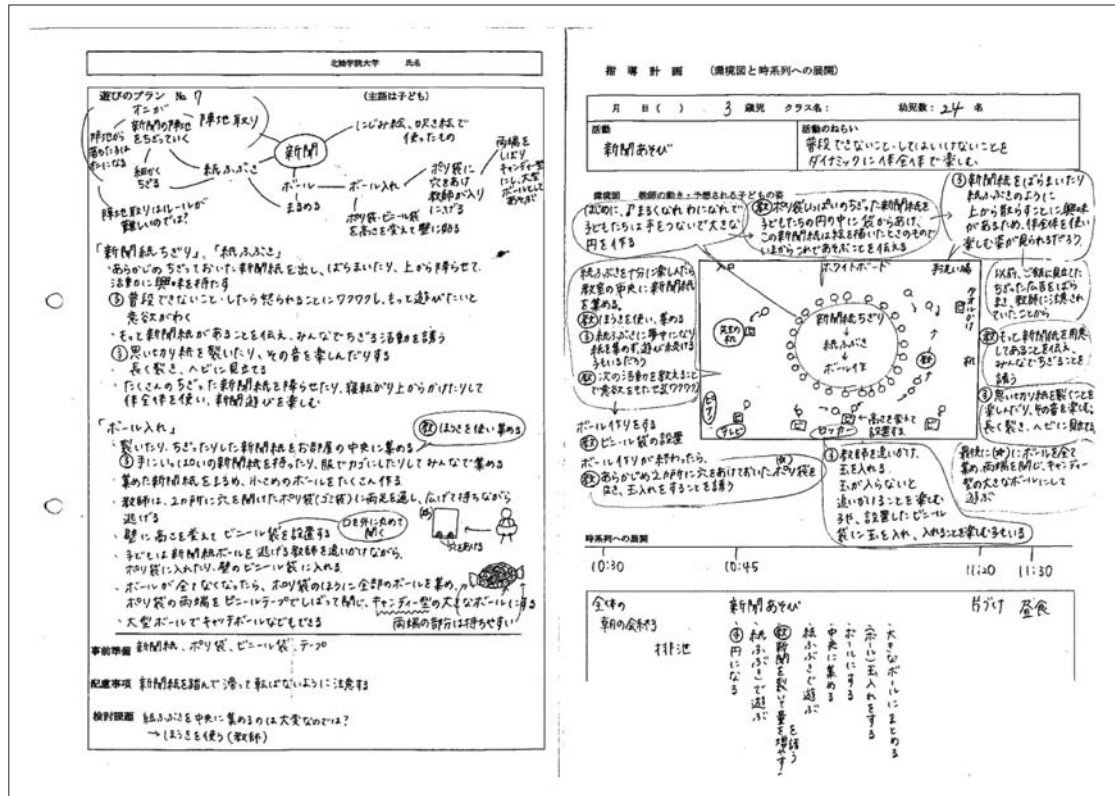 北陸学院大学 氏名
遊びのプラン No. 7 (主語は子ども)
オニが
新聞の陣地
をちぎっていく
陣地取り
陣地から
落ちたらは
オニになる
細かく
ちぎる
紙ふぶき
陣地取りはルールが
難しいのでは?
新聞
にじみ絵、吹き絵で
使ったもの
ボール
まるめる
ボール入れ
ポリ袋に
穴をあけ
教師が入り
にげる
ポリ袋・ビニール袋
を高さを変えて壁に貼る
両端を
しばり
キャンディー型
にし、大型
ボールとして
あそぶ
「新聞紙ちぎり」、「紙ふぶき」
・あらかじめちぎっておいた新聞紙を出し、ばらまいたり、上から降らせて
活動に興味を持たす
子 普段できないこと・したら怒られることにワクワクし、もっと遊びたいと
意欲がわく
・もっと新聞紙があることを伝え、みんなでちぎる活動を誘う
子 思いきり紙を裂いたり、その音を楽しんだりする
・長く裂き、ヘビに見立てる
・たくさんのちぎった新聞紙を降らせたり、寝転がり上からかけたりして
体全体を使い、新聞遊びを楽しむ
「ボール入れ」
教 ほうきを使い集める
・裂いたり、ちぎったりした新聞紙をお部屋の中央に集める
子 手にいっぱいの新聞紙を持ったり、服でカゴにしたりしてみんなで集める
・集めた新聞紙をまるめ、小さめのボールをたくさん作る
・教師は、2ヵ所に穴を開けたポリ袋(ゴミ袋)に両足を通し、広げて持ちながら
逃げる
・壁に高さを変えてビニール袋を設置する
口を外に丸めて
開く
穴をあける
・子どもは新聞紙ボールを逃げる教師を追いかけながら、
ポリ袋に入れたり、壁のビニール袋に入れる
・ボールが全てなくなったら、ポリ袋のほうに全部のボールを集め、
ポリ袋の両端をビニールテープでしばって閉じ、キャンディー型の大きなボールにする
・大型ボールでキャッチボールなどもできる
両端の部分は持ちやすい
事前準備 新聞紙、ポリ袋、ビニール袋、テープ
配慮事項 新聞紙を踏んで滑って転ばないように注意する
検討課題 紙ふぶきを中央に集めるのは大変なのでは?
→ほうきを使う(教師)
指導計画 (環境図と時系列への展開)
月 日( ) 3歳児 クラス名: 幼児数:24名
活動
新聞あそび
活動のねらい
普段できないこと・してはいけないことを
ダイナミックに体全体で楽しむ
環境図 教師の動き・予想される子どもの姿
はじめに、♪まるくなれわになれで
子どもたちは手をつないで大きな
円を作る
教 ポリ袋いっぱいの ちぎった新聞紙を
子どもたちの円の中に袋からあけ、
この新聞紙は絵を描いたときのもので
いまからこれであそぶことを伝える
子 新聞紙をばらまいたり
紙ふぶきのように
上から散らすことに興味
があるため、体全体を使い
楽しむ姿が見られるだろう。
以前、ご飯に見立てた
ちぎった広告をばら
まき、教師に注意され
ていたことから
教 もっと新聞紙を用意
してあることを伝え、
みんなでちぎることを
誘う
子 思いきり紙を裂くことを
楽しんだり、その音を楽しむ。
長く裂き、ヘビに見立てる
紙ふぶきを十分に楽しんだら
教室の中央に新聞紙
を集める。
教 ほうきを使い、集める
子 紙ふぶきに夢中になり
紙を集めず、遊び続ける
子もいるだろう
教 次の活動を教えること
で意欲をもたせる
入口
ホワイトボード
手洗い場
タオルかけ
先生の
机
新聞紙ちぎり
紙ふぶき
ボール作り
教師
机
ピアノ
テレビ
ロッカー
高さを変えて
設置する
ボール作りをする
教 ビニール袋の設置
ボール作りが終わったら、
教 あらかじめ2ヵ所に穴をあけておいたポリ袋を
出し、玉入れをすることを誘う
子 教師を追いかけ、
玉を入れる
玉が入らないと
追いかけることを楽しむ
子や、設置したビニール
袋に玉を入れ、入れることを楽しむ子もいる
最後に にボールを全て
集め、両端を閉じ、キャンディー
型の大きなボールにして
遊ぶ
時系列への展開
10:30 10:45 11:20 11:30
全体の
朝の会終了
排泄
新聞あそび
・子 円になる
・紙ふぶきで遊ぶ
・教 新聞を裂いて量を増やす
を誘う
・紙ふぶきで遊ぶ
・中央に集める
・ボールにする
・(ボール)玉入れをする
・大きなボールにまとめる
片づけ
昼食